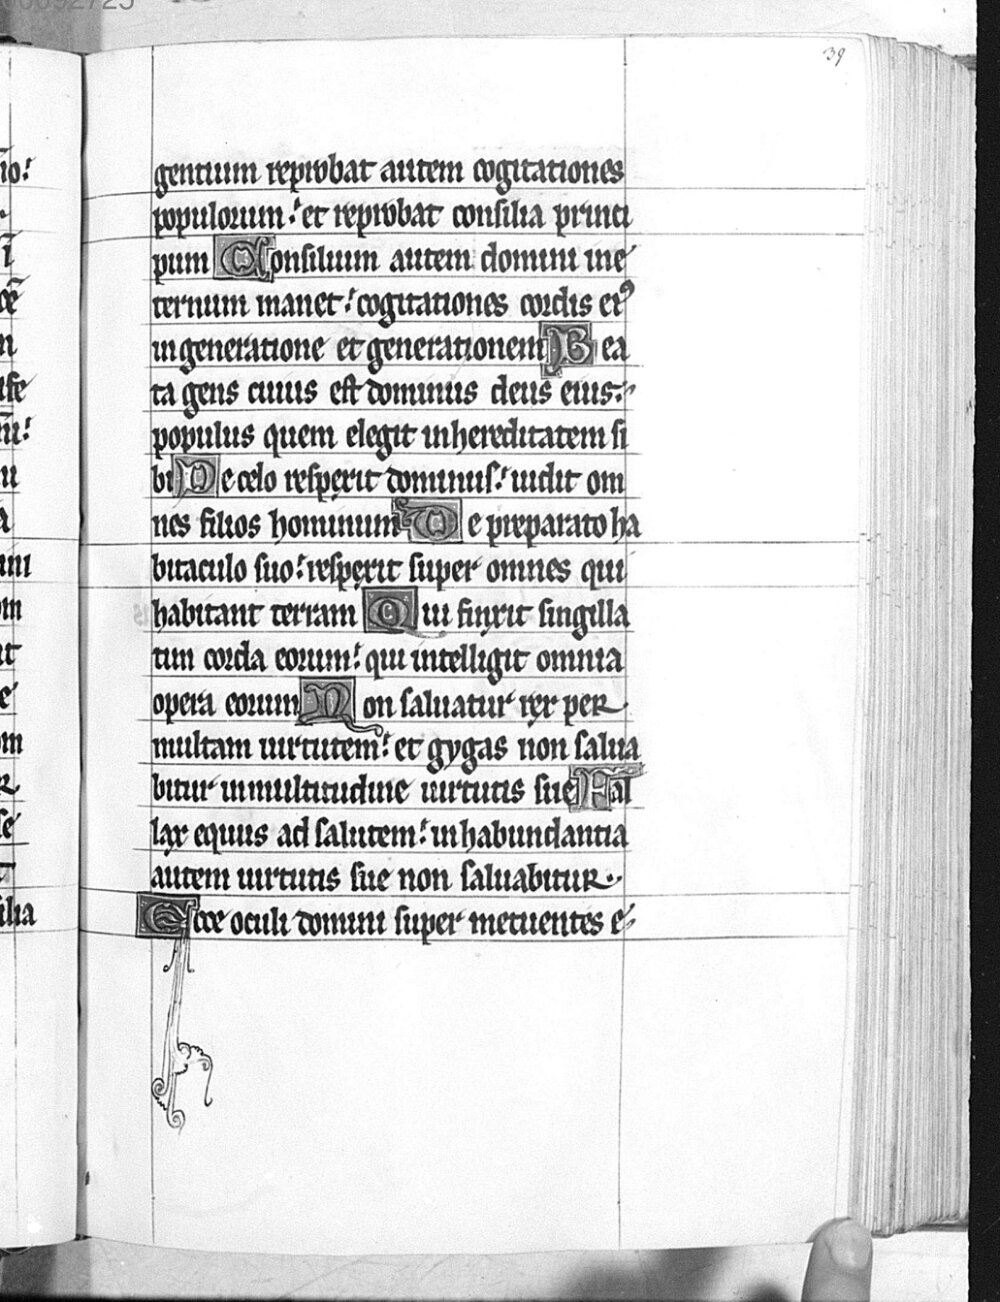 39
gentium reprobat autem cogitationes
populorum: et reprobat consilia princi
pum Consilium autem domini ine
ternum manet: cogitationes cordis ei9
in generatione et generationem Bea
ta gens cuius est dominus deus eius:
populus quem elegit in hereditatem si
bi De celo respexit dominus: uidit om
nes filios hominum De preparato ha
bitaculo suo: respexit super omnes qui
habitant terram Qui finxit singilla
tim corda eorum: qui intelligit omnia
opera eorum Non saluatur rex per
multam uirtutem: et gygas non salua
bitur in multitudine uirtutis sue Fal
lax equus ad salutem: in habundantia
autem uirtutis sue non saluabitur.
Ecce oculi domini super metuentes e